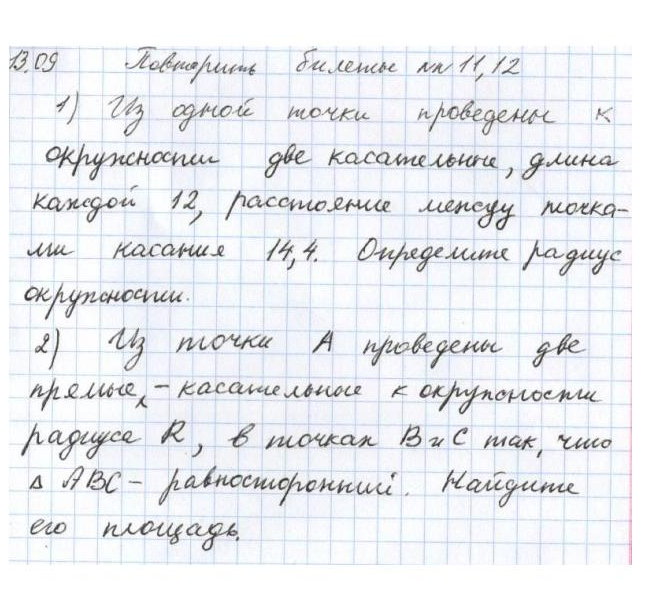 13.09 Повторить билеты №№ 11, 12
1) Из одной точки проведены к
окружности две касательные, длина
каждой 12, расстояние между точка-
ми касания 14,4. Определите радиус
окружности.
2) Из точки А проведены две
прямые, - касательные к окружности
радиуса R, в точках В и С так, что
Δ АВС - равносторонний. Найдите
его площадь.